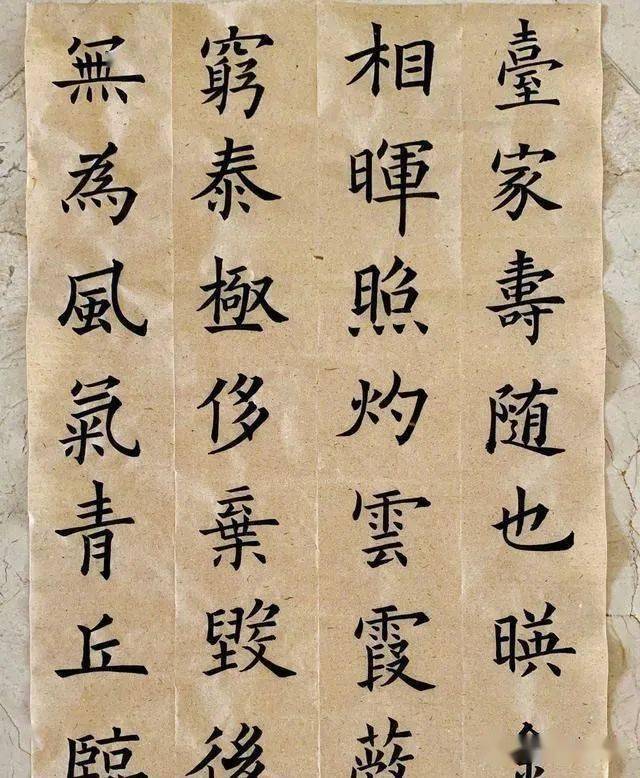 臺家壽随也暎
相暉照灼雲霞蔽
窮泰極侈棄毀後
無為風氣青丘臨